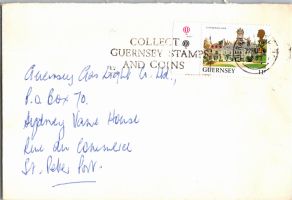 COLLECT
GUERNSEY STAMPS
AND COINS
GUERNSEY
Guernsey Gas Light Co. Ltd.,
P.O Box 70.
Sydney Vane House
Rue du Commerce
St. Peter Port.